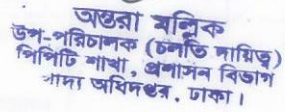 অন্তরা মল্লিক
উপ-পরিচালক (চলতি দায়িত্ব)
পিপিটি শাখা, প্রশাসন বিভাগ
খাদ্য অধিদপ্তর, ঢাকা।